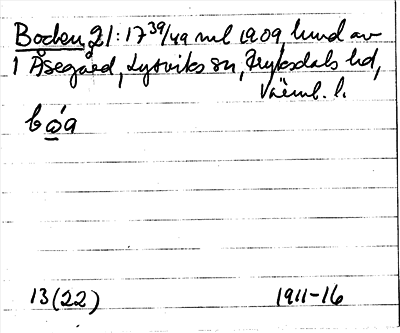 Boden 21: 17 39/49 ml 1909, hund av
1 Åsegård, Lysviks sn, Fryksdals hd,
Värml. l.
bóa
13(22) 1911-16